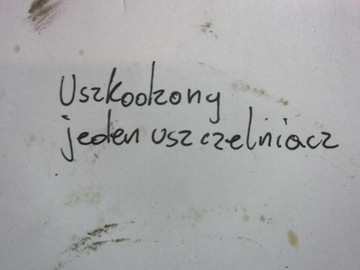 Uszkodzony
jeden uszczelniacz